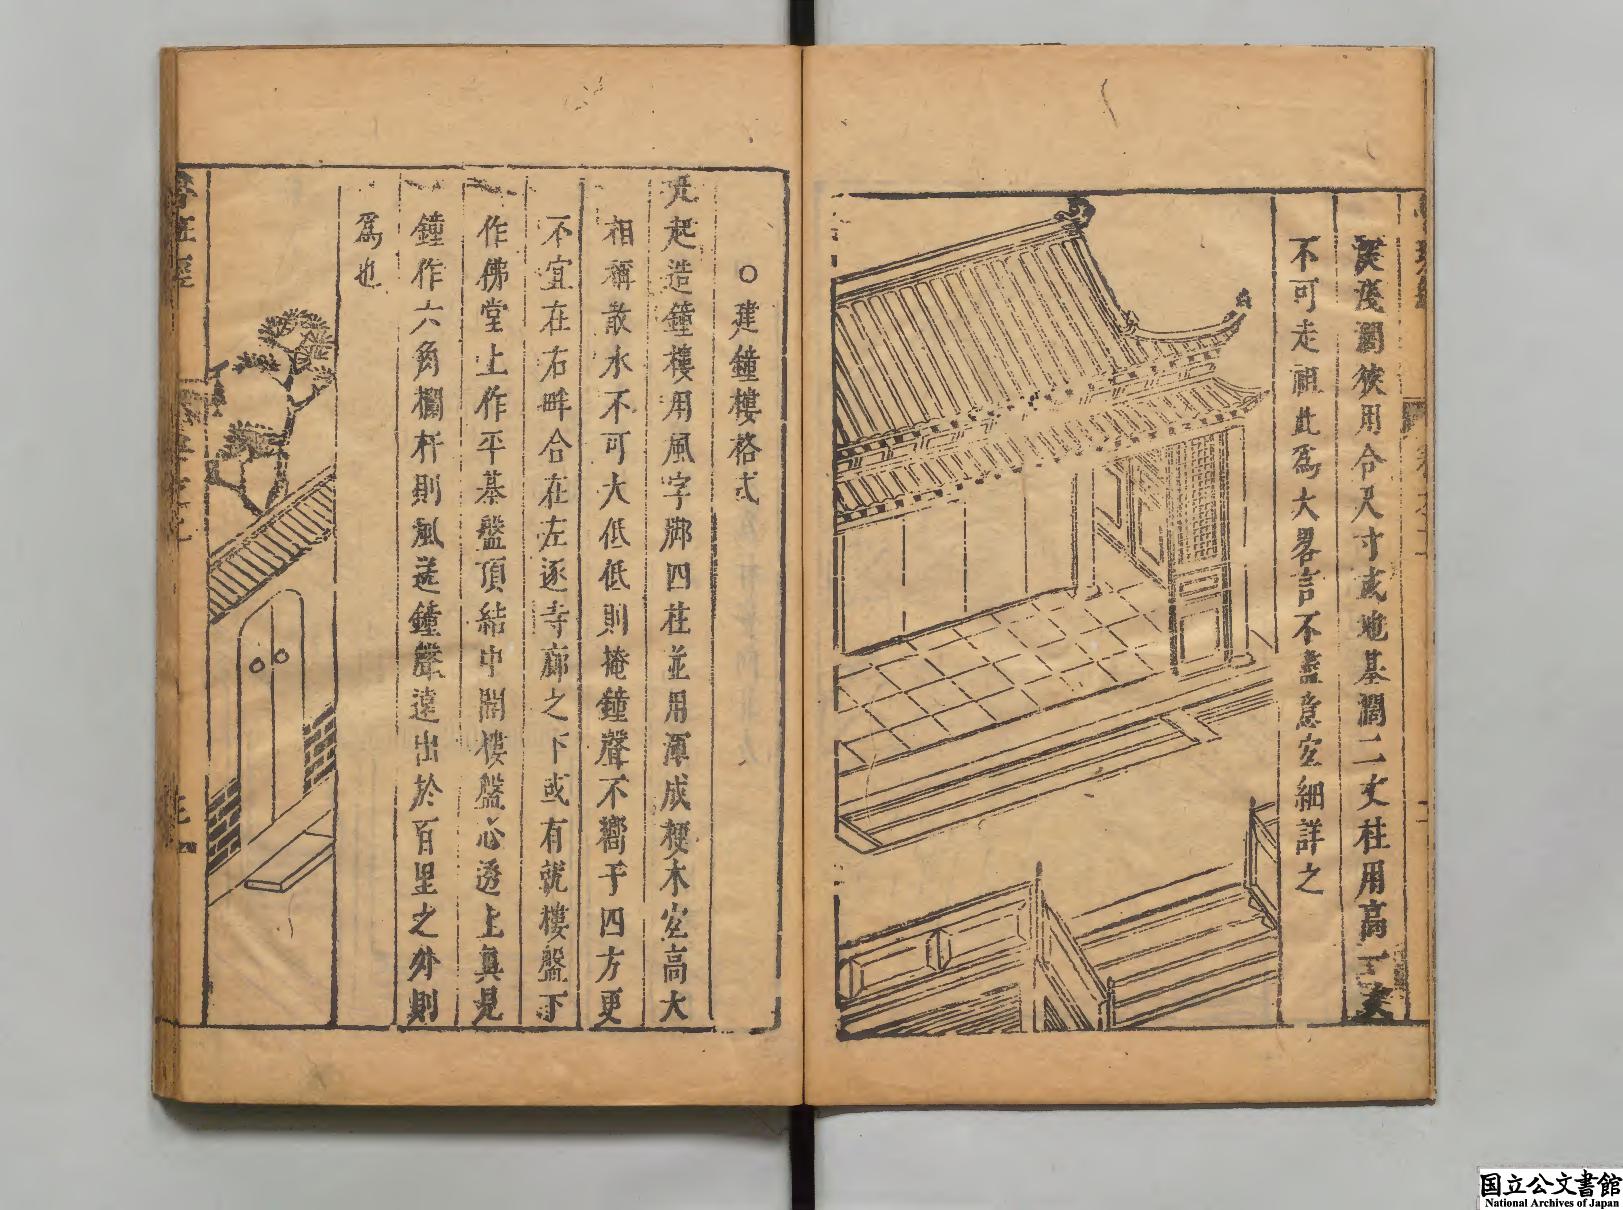 淺深濶狹用合尺寸或地基濶二丈柱用高一丈
不可走祖此為大畧言不盡意宜細詳之
○建鐘樓格式
凡起造鐘樓用風字脚四柱並用渾成梗木宜高大
相稱散水不可大低低則掩鐘聲不嚮于四方更
不宜在右畔合在左逐寺廊之下或有就樓盤下
作佛堂上作平棊盤頂結中開樓盤心透上真見
鐘作六角欄杆則風送鐘聲遠出於百里之外則
為也
魯班經
国立公文書館
National Archives of Japan